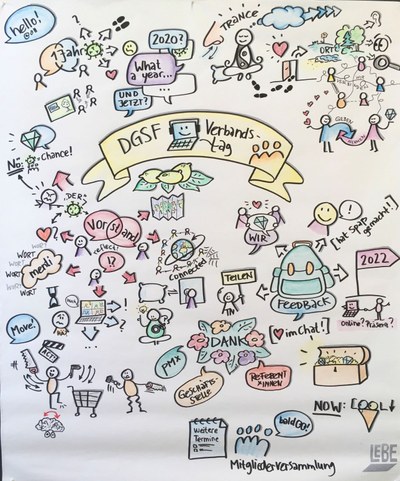 hello!
1 Jahr
2020?
What
a
year...
UND
JETZT?
TRANCE
ORTE
GEBEN
DGSF
Verbands-
tag
No:
Chance!
DER
Vor(st)and
reflect!
WORT
WORT
WORT
WORT
menti
!?
Connected
WIR
[hat Spaß
gemacht!]
TEILEN
TN
FEEDBACK
2022
Online? Präsenz?
[♥ im Chat!]
Move.
ACT!
DANK
PMX
GESCHÄFTS-
STELLE
REFERENT
*INNEN
NOW: COOL
Weitere
Termine
bald00!
Mitgliederversammlung
LEBE